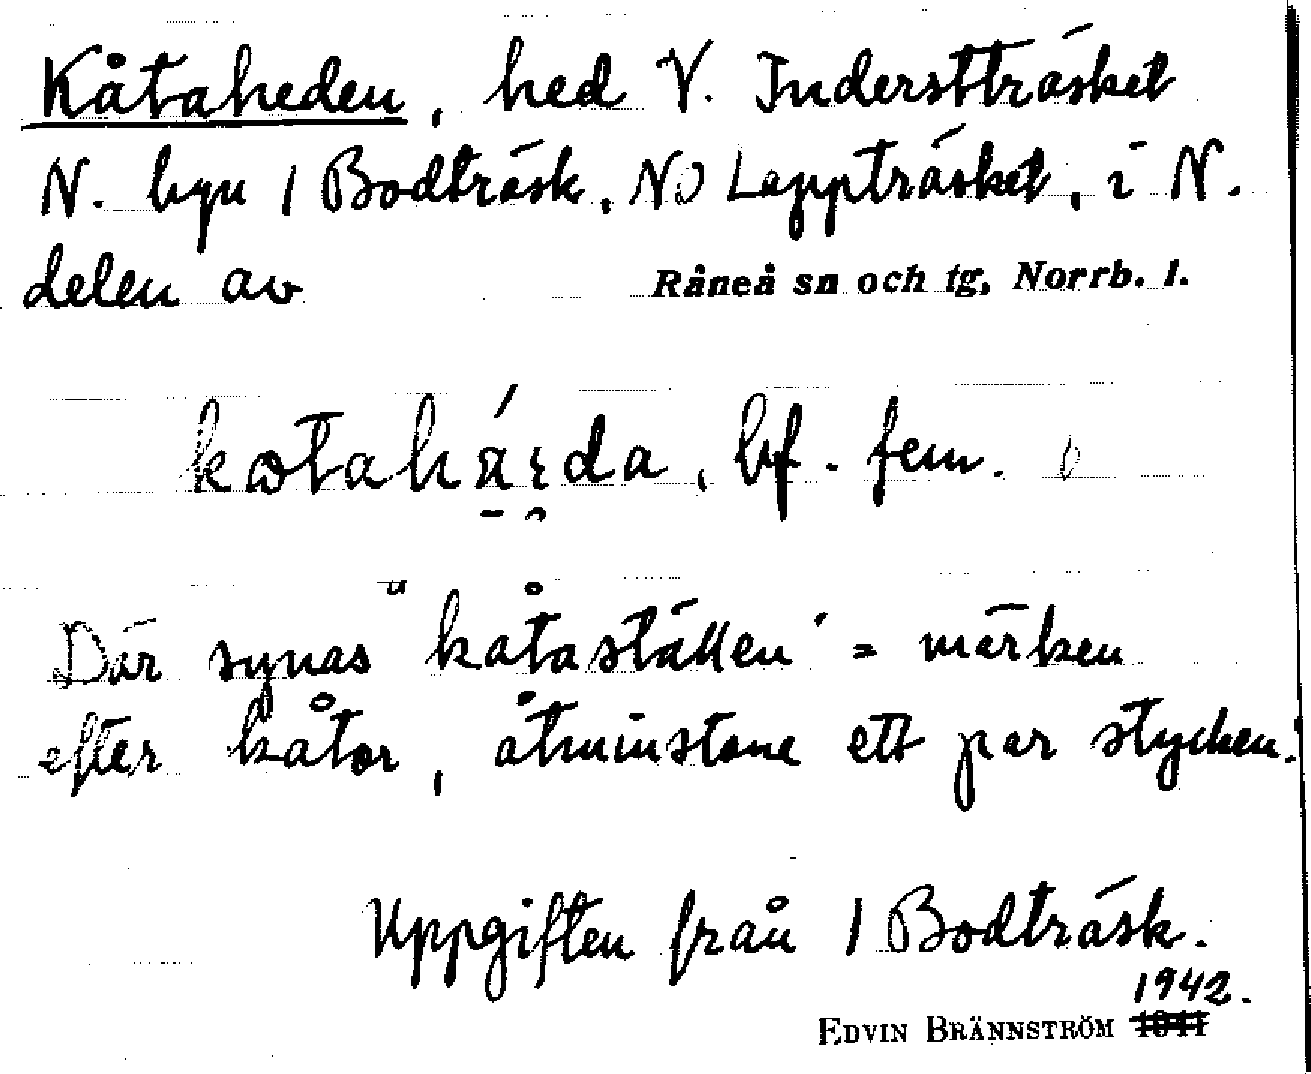 Kåtaheden, hed V. Indersttträsket
N. byn 1 Bodträsk, NO Lappträsket, i N.
delen av Råneå sn och tg, Norrb. l.
bf. fem.
Där synas "kåtaställen" = märken
efter kåtor, åtminstone ett par stycken.
Uppgiften från 1 Bodträsk.
1942.
EDVIN BRÄNNSTRÖM 1941